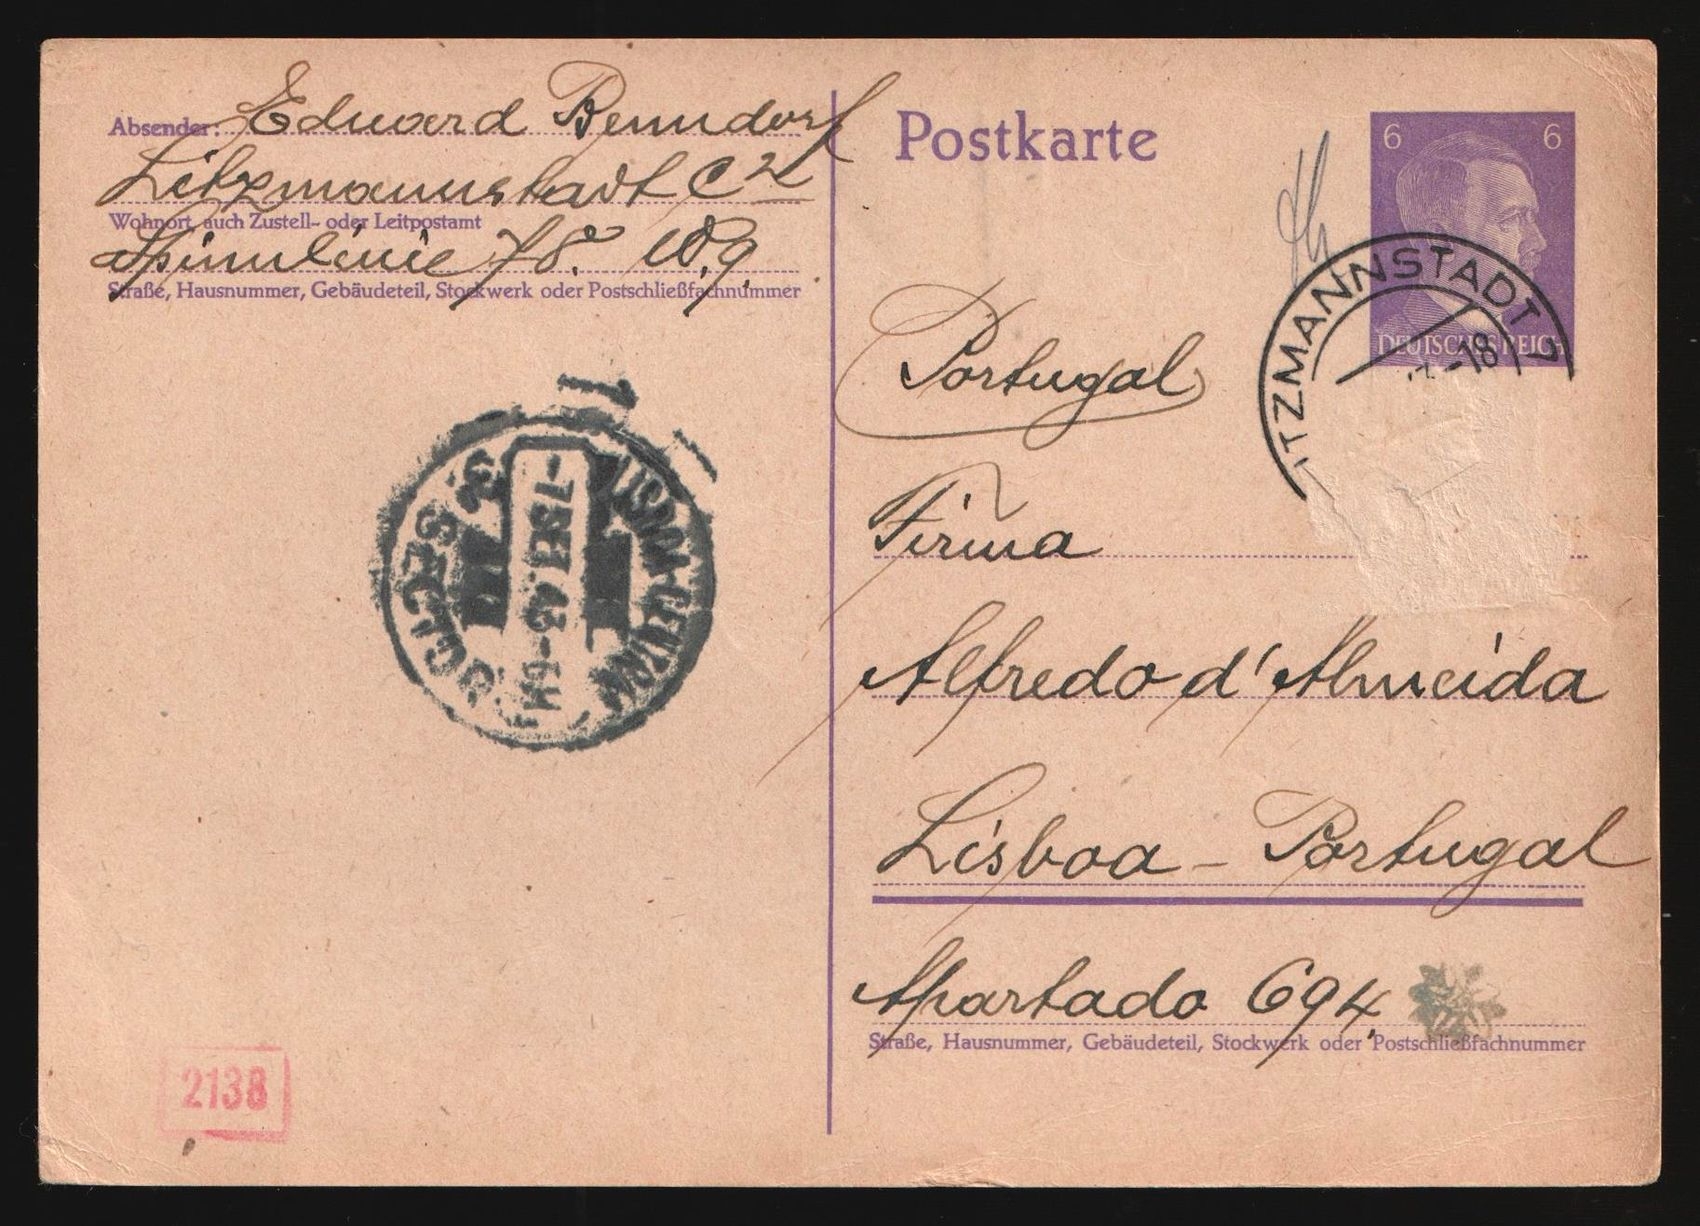 Absender: Eduard Benndorf
Litzmannstadt C 2
Wohnort, auch Zustell- oder Leitpostamt
Spinnlinie 78. W. 9
Straße, Hausnummer, Gebäudeteil, Stockwerk oder Postschließfachnummer
Postkarte
6 6
DEUTSCHES REICH
ITZMANNSTADT
-18
Portugal
Firma
Alfredo d'Almeida
Lisboa - Portugal
Apartado 694.
Straße, Hausnummer, Gebäudeteil, Stockwerk oder Postschließfachnummer
LISBOA-CENTRAL
3ª SECÇÃO
2138